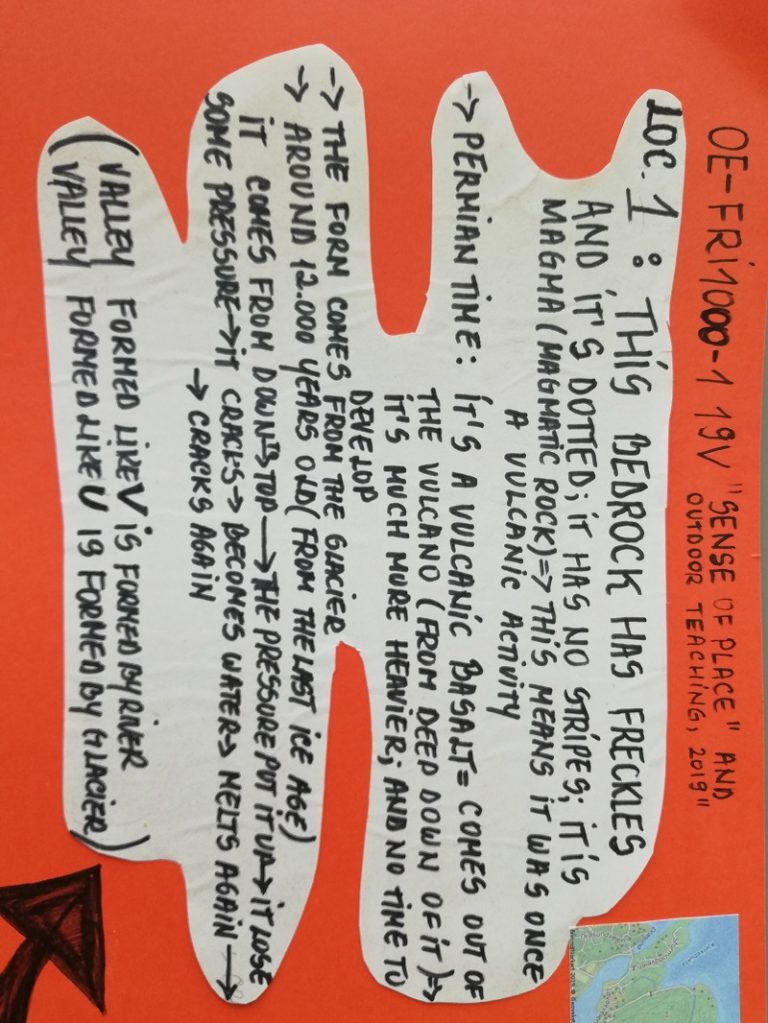 OE-FRi1000-1 19V "SENSE OF PLACE" AND
OUTDOOR TEACHING, 2019"
LOC. 1 : THIS BEDROCK HAS FRECKLES
AND IT'S DOTTED; IT HAS NO STRIPES; IT IS
MAGMA (MAGMATIC ROCK) => THIS MEANS IT WAS ONCE
A VULCANIC ACTIVITY
-> PERMIAN TIME: IT'S A VULCANIC BASALT = COMES OUT OF
THE VULCANO (FROM DEEP DOWN OF IT) =>
IT'S MUCH MORE HEAVIER; AND NO TIME TO
DEVELOP
-> THE FORM COMES FROM THE GLACIER
-> AROUND 12.000 YEARS OLD (FROM THE LAST ICE AGE)
IT COMES FROM DOWN TO TOP -> THE PRESSURE PUT IT UP -> IT LOSE
SOME PRESSURE -> IT CRACKS -> BECOMES WATER -> MELTS AGAIN ->
-> CRACKS AGAIN
(VALLEY FORMED LIKE V IS FORMED BY RIVER
VALLEY FORMED LIKE U IS FORMED BY GLACIER)